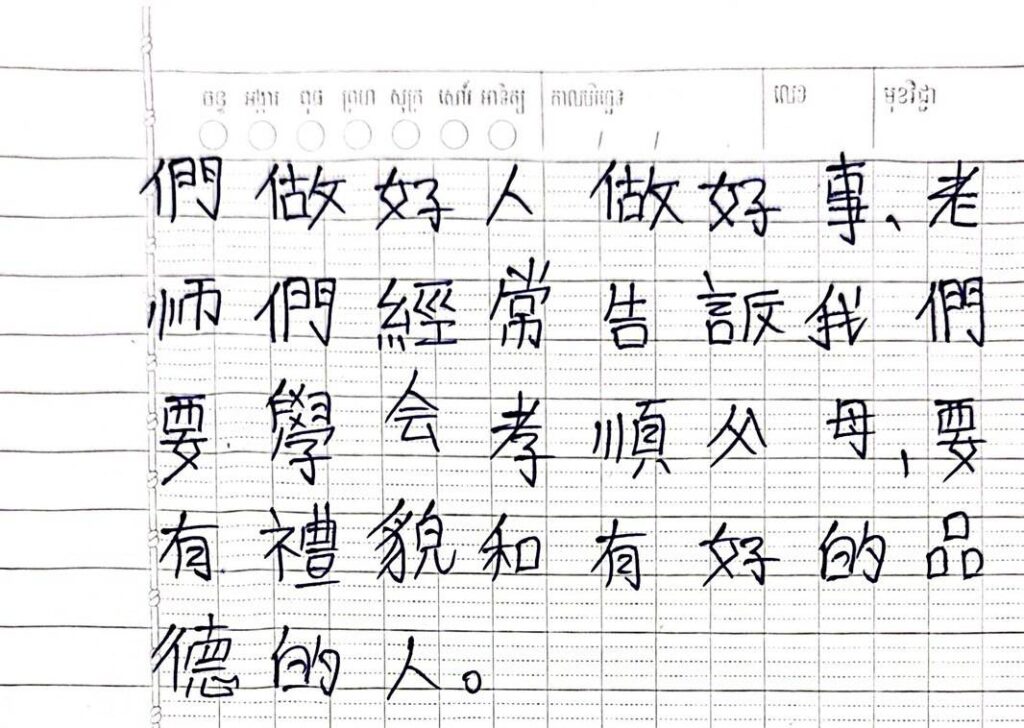 ចន្ទ អង្គារ ពុធ ព្រហ សុក្រ សៅរ៍ អាទិត្យ កាលបរិច្ឆេទ លេខ មុខវិជ្ជា
們做好人做好事、老
师們經常告訴我們
要學会孝順父母,要
有禮貌和有好的品
德的人。